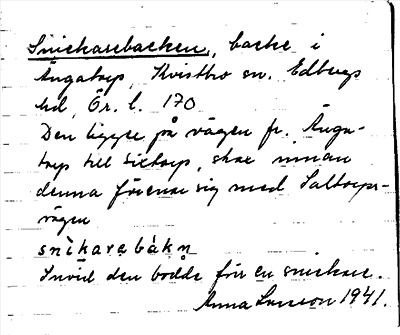 Snickarebacken, backe i
Ängatorp, Kvistbro sn. Edbergs
hd, Ör. l. 170
Den ligger på vägen fr. Änga-
torp till Sixtorp, strax innan
denna förenar sig med Saltorps-
vägen
snìkarabàkn̥
Invid den bodde förr en snickare.
Anna Larsson 1941.